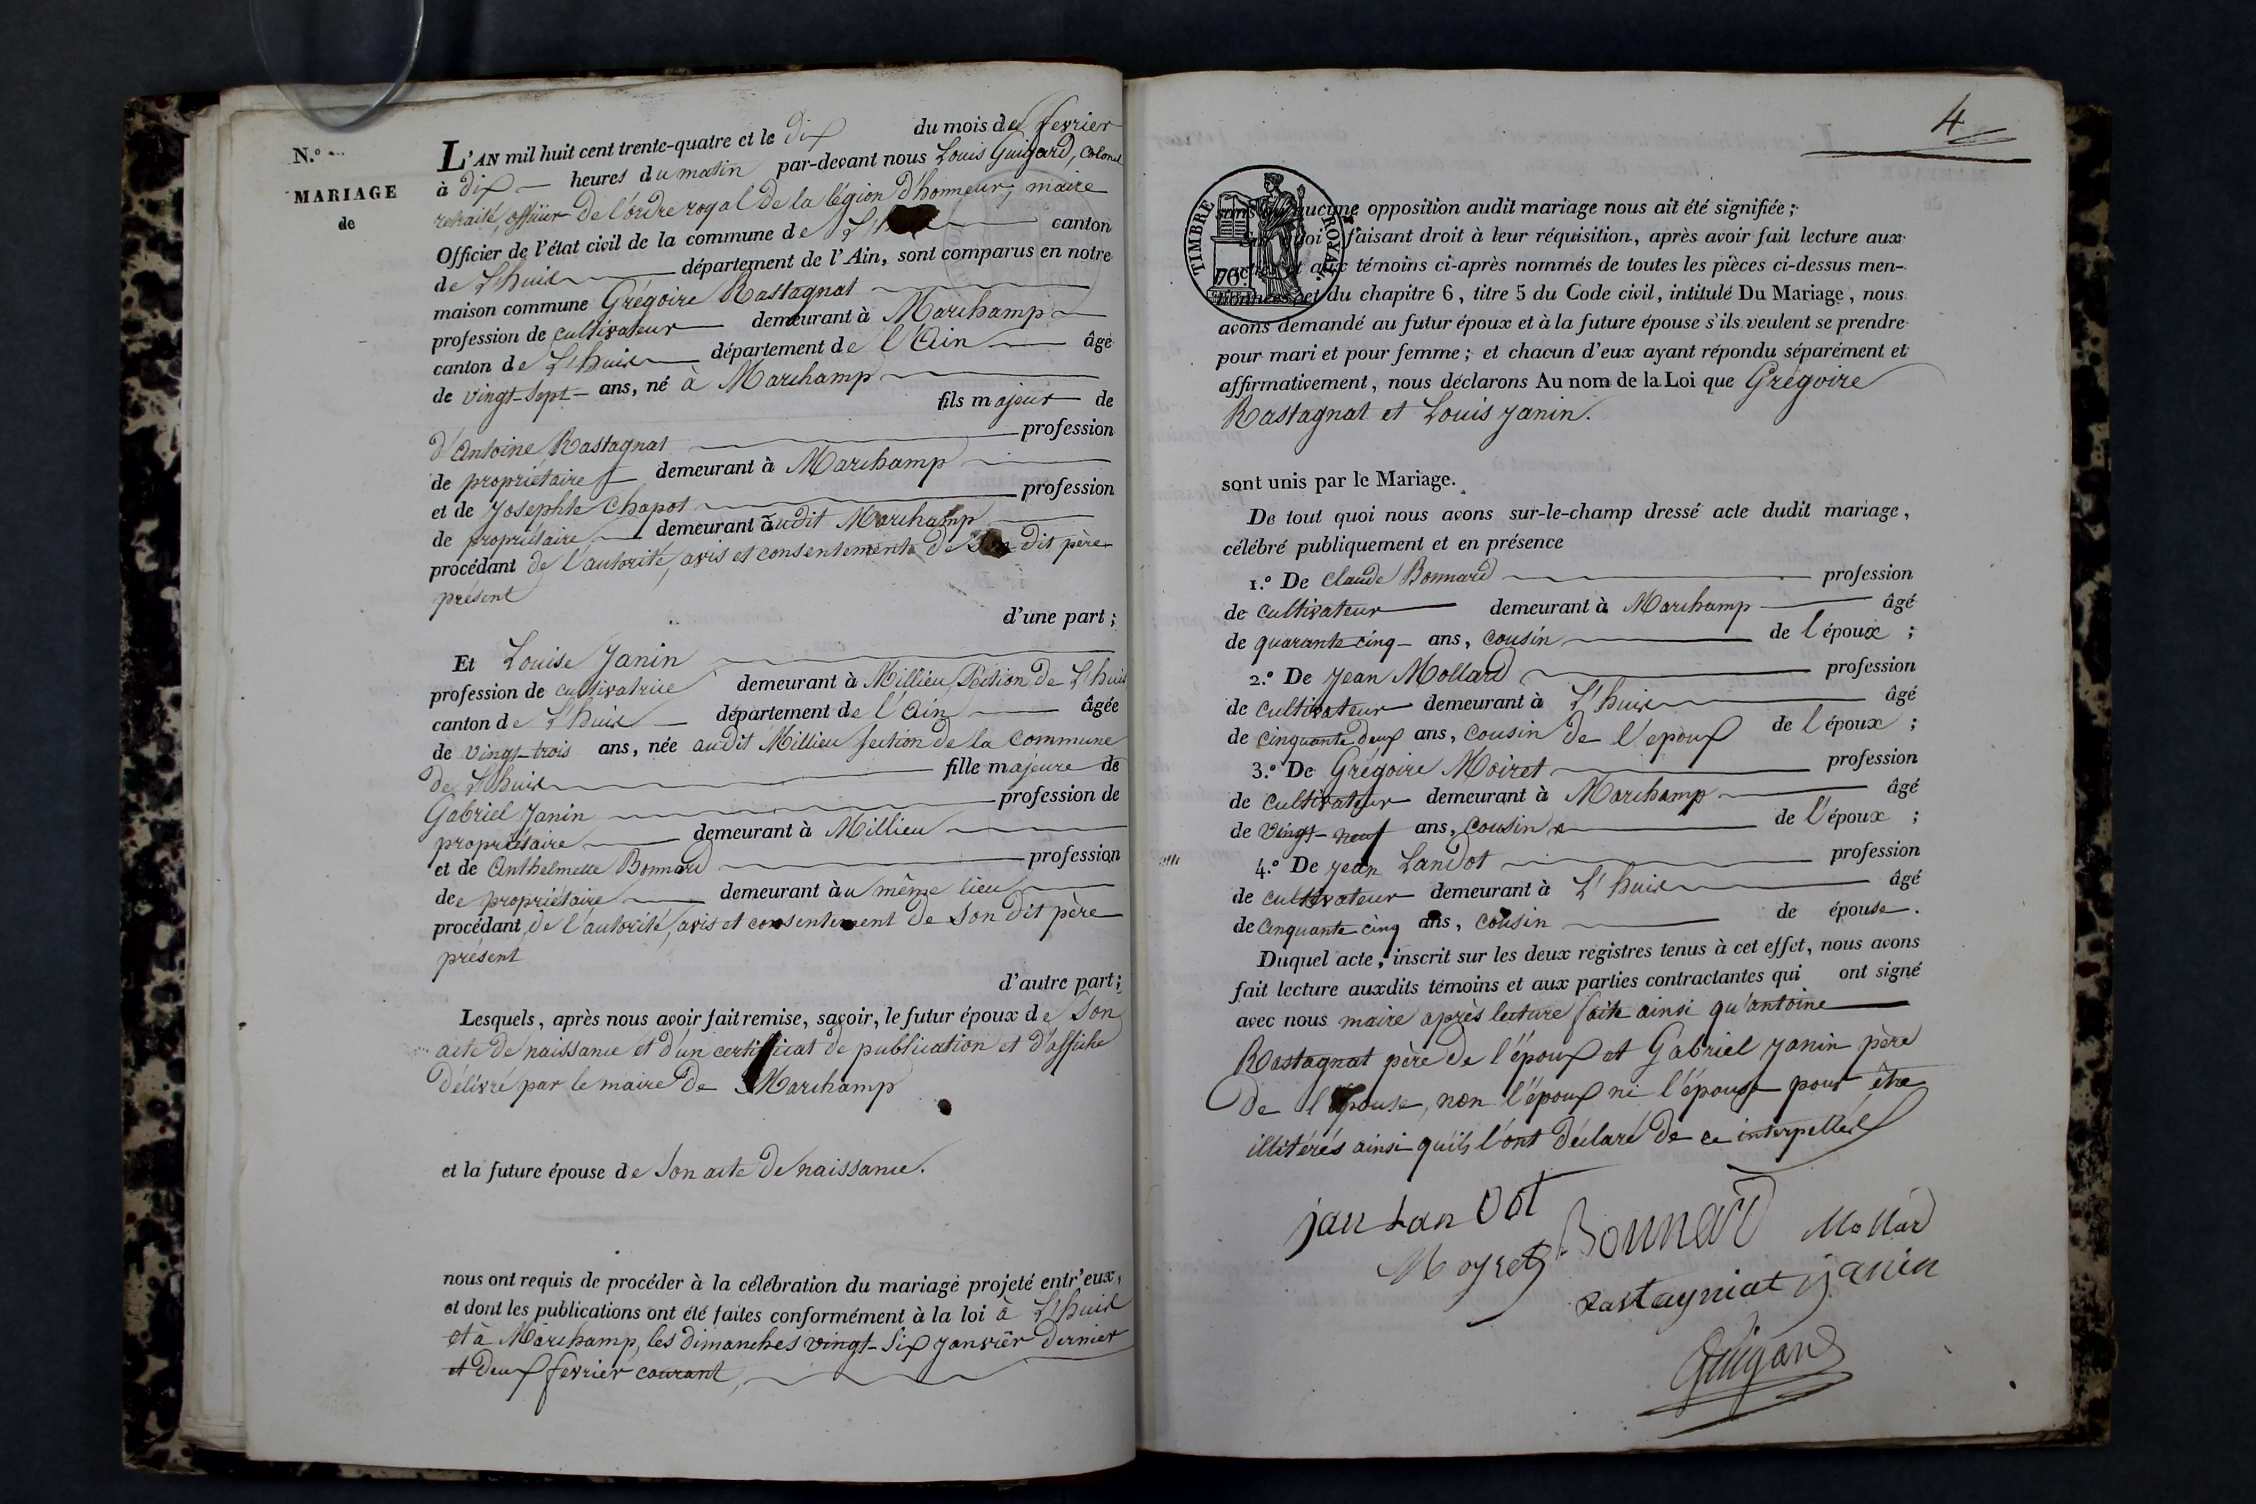 N.°
MARIAGE
de
L'AN mil huit cent trente-quatre et le dix du mois de fevrier
à dix heures du matin par-devant nous Louis Guigard, Colonel
retraité, officier de l'ordre royal de la légion d'honneur, maire
Officier de l'état civil de la commune de canton
de L'huis département de l'Ain, sont comparus en notre
maison commune Grégoire Rastagnat
profession de cultivateur demeurant à Marchamp
canton de L'huis département de l'Ain âgé
de vingt-sept ans, né à Marchamp
fils majeur de
d'Antoine Rastagnat profession
de propriétaire demeurant à Marchamp
et de Josephte Chapot profession
de propriétaire demeurant audit Marchamp
procédant de l'autorité, avis et consentement de son dit père
présent
d'une part ;
Et Louise Janin
profession de cultivatrice demeurant à Millieu, Section de L'huis
canton de L'huis département de l'Ain âgée
de vingt-trois ans, née audit Millieu section de la Commune
de L'huis fille majeure de
Gabriel Janin profession de
propriétaire demeurant à Millieu
et de Anthelmette Bonnard profession
de propriétaire demeurant au même lieu
procédant de l'autorité, avis et consentement de son dit père
présent
d'autre part ;
Lesquels, après nous avoir fait remise, savoir, le futur époux de Son
acte de naissance et d'un certificat de publication et d'affiche
délivré par le maire de Marchamp
et la future épouse de son acte de naissance.
nous ont requis de procéder à la célébration du mariage projeté entr'eux,
et dont les publications ont été faites conformément à la loi à L'huis
et à Marchamp, les dimanches vingt-six janvier dernier
et deux fevrier courant,
4
TIMBRE ROYAL
70
aucune opposition audit mariage nous ait été signifiée ;
faisant droit à leur réquisition, après avoir fait lecture aux
et aux témoins ci-après nommés de toutes les pièces ci-dessus men-
et du chapitre 6, titre 5 du Code civil, intitulé Du Mariage, nous
avons demandé au futur époux et à la future épouse s'ils veulent se prendre
pour mari et pour femme ; et chacun d'eux ayant répondu séparément et
affirmativement, nous déclarons Au nom de la Loi que Grégoire
Rastagnat et Louis Janin.
sont unis par le Mariage.
De tout quoi nous avons sur-le-champ dressé acte dudit mariage,
célébré publiquement et en présence
1.° De Claude Bonnard profession
de cultivateur demeurant à Marchamp âgé
de quarante cinq ans, cousin de l'époux ;
2.° De Jean Mollard profession
de cultivateur demeurant à L'huis âgé
de cinquante deux ans, cousin de l'époux de l'époux ;
3.° De Grégoire Moiret profession
de cultivateur demeurant à Marchamp âgé
de vingt-neuf ans, cousin de l'époux ;
4.° De Jean Landot profession
de cultivateur demeurant à L'huis âgé
de cinquante cinq ans, cousin de épouse.
Duquel acte, inscrit sur les deux registres tenus à cet effet, nous avons
fait lecture auxdits témoins et aux parties contractantes qui ont signé
avec nous maire après lecture faite ainsi qu'antoine
Rastagnat père de l'époux et Gabriel Janin père
de l'épouse, non l'époux ni l'épouse pour être
illitérés ainsi qu'ils l'ont déclaré de ce interpellés
jan Lan Dot
Moyret Bonnard Mollard
Rastagniat janin
Guigard